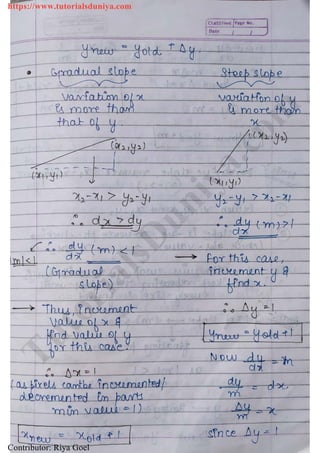 https://www.tutorialsduniya.com
Classmate Page No.
Date / /
ynew = yold + Δy.
• Gradual slope
variation of x
is more than
that of y.
(x2,y2)
(x1,y1)
x2-x1 > y2-y1
∴ dx > dy
∴ dy/dx (m) < 1
|m|<1
(Gradual
slope)
→ Thus, increment
value of x &
find value of y
for this case.
∴ Δx = 1
(as pixels cantbe incremented/
decremented in parts
min value = 1)
xnew = xold + 1
Steep slope
variation of y
is more than
x
(x2,y2)
(x1,y1)
y2-y1 > x2-x1
∴ dy/dx (m) > 1
→ For this case,
increment y &
find x.
∴ Δy = 1
ynew = yold + 1
Now dy/dx = m
dy/m = dx
Δy/m = x
since Δy = 1
TutorialsDuniya.com
Contributor: Riya Goel